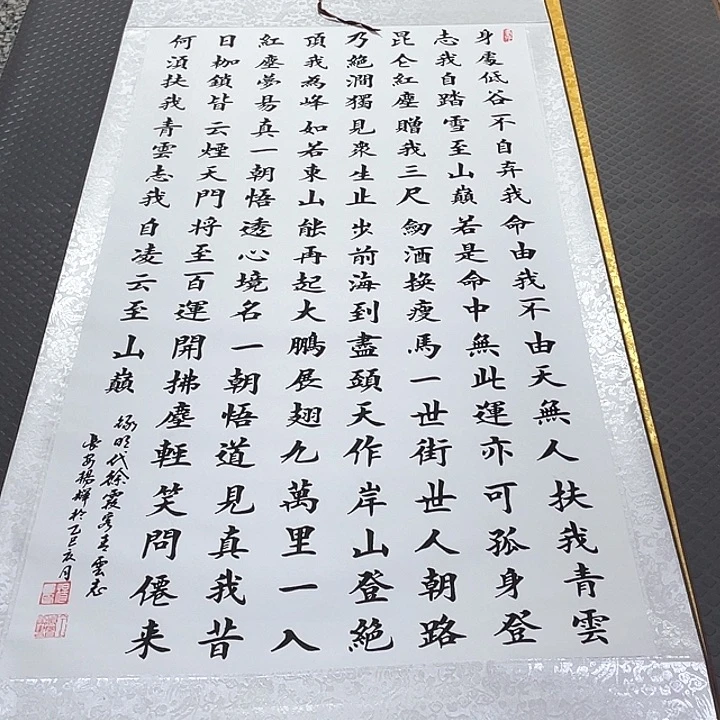 身處低谷不自弃我命由我不由天無人扶我青雲
志我自踏雪至山巔若是命中無此運亦可孤身登
昆仑紅塵贈我三尺劍酒換瘦馬一世街世人朝路
乃絕澗獨見衆生止步前海到盡頭天作岸山登絕
頂我為峰如若東山能再起大鵬展翅九萬里一入
紅塵夢易真一朝悟透心境名一朝悟道見真我昔
日枷鎖皆云煙天門將至百運開拂塵輕笑問僊来
何須扶我青雲志我自凌云至山巔
錄明代徐霞客青雲志
長安楊輝於乙巳亥月